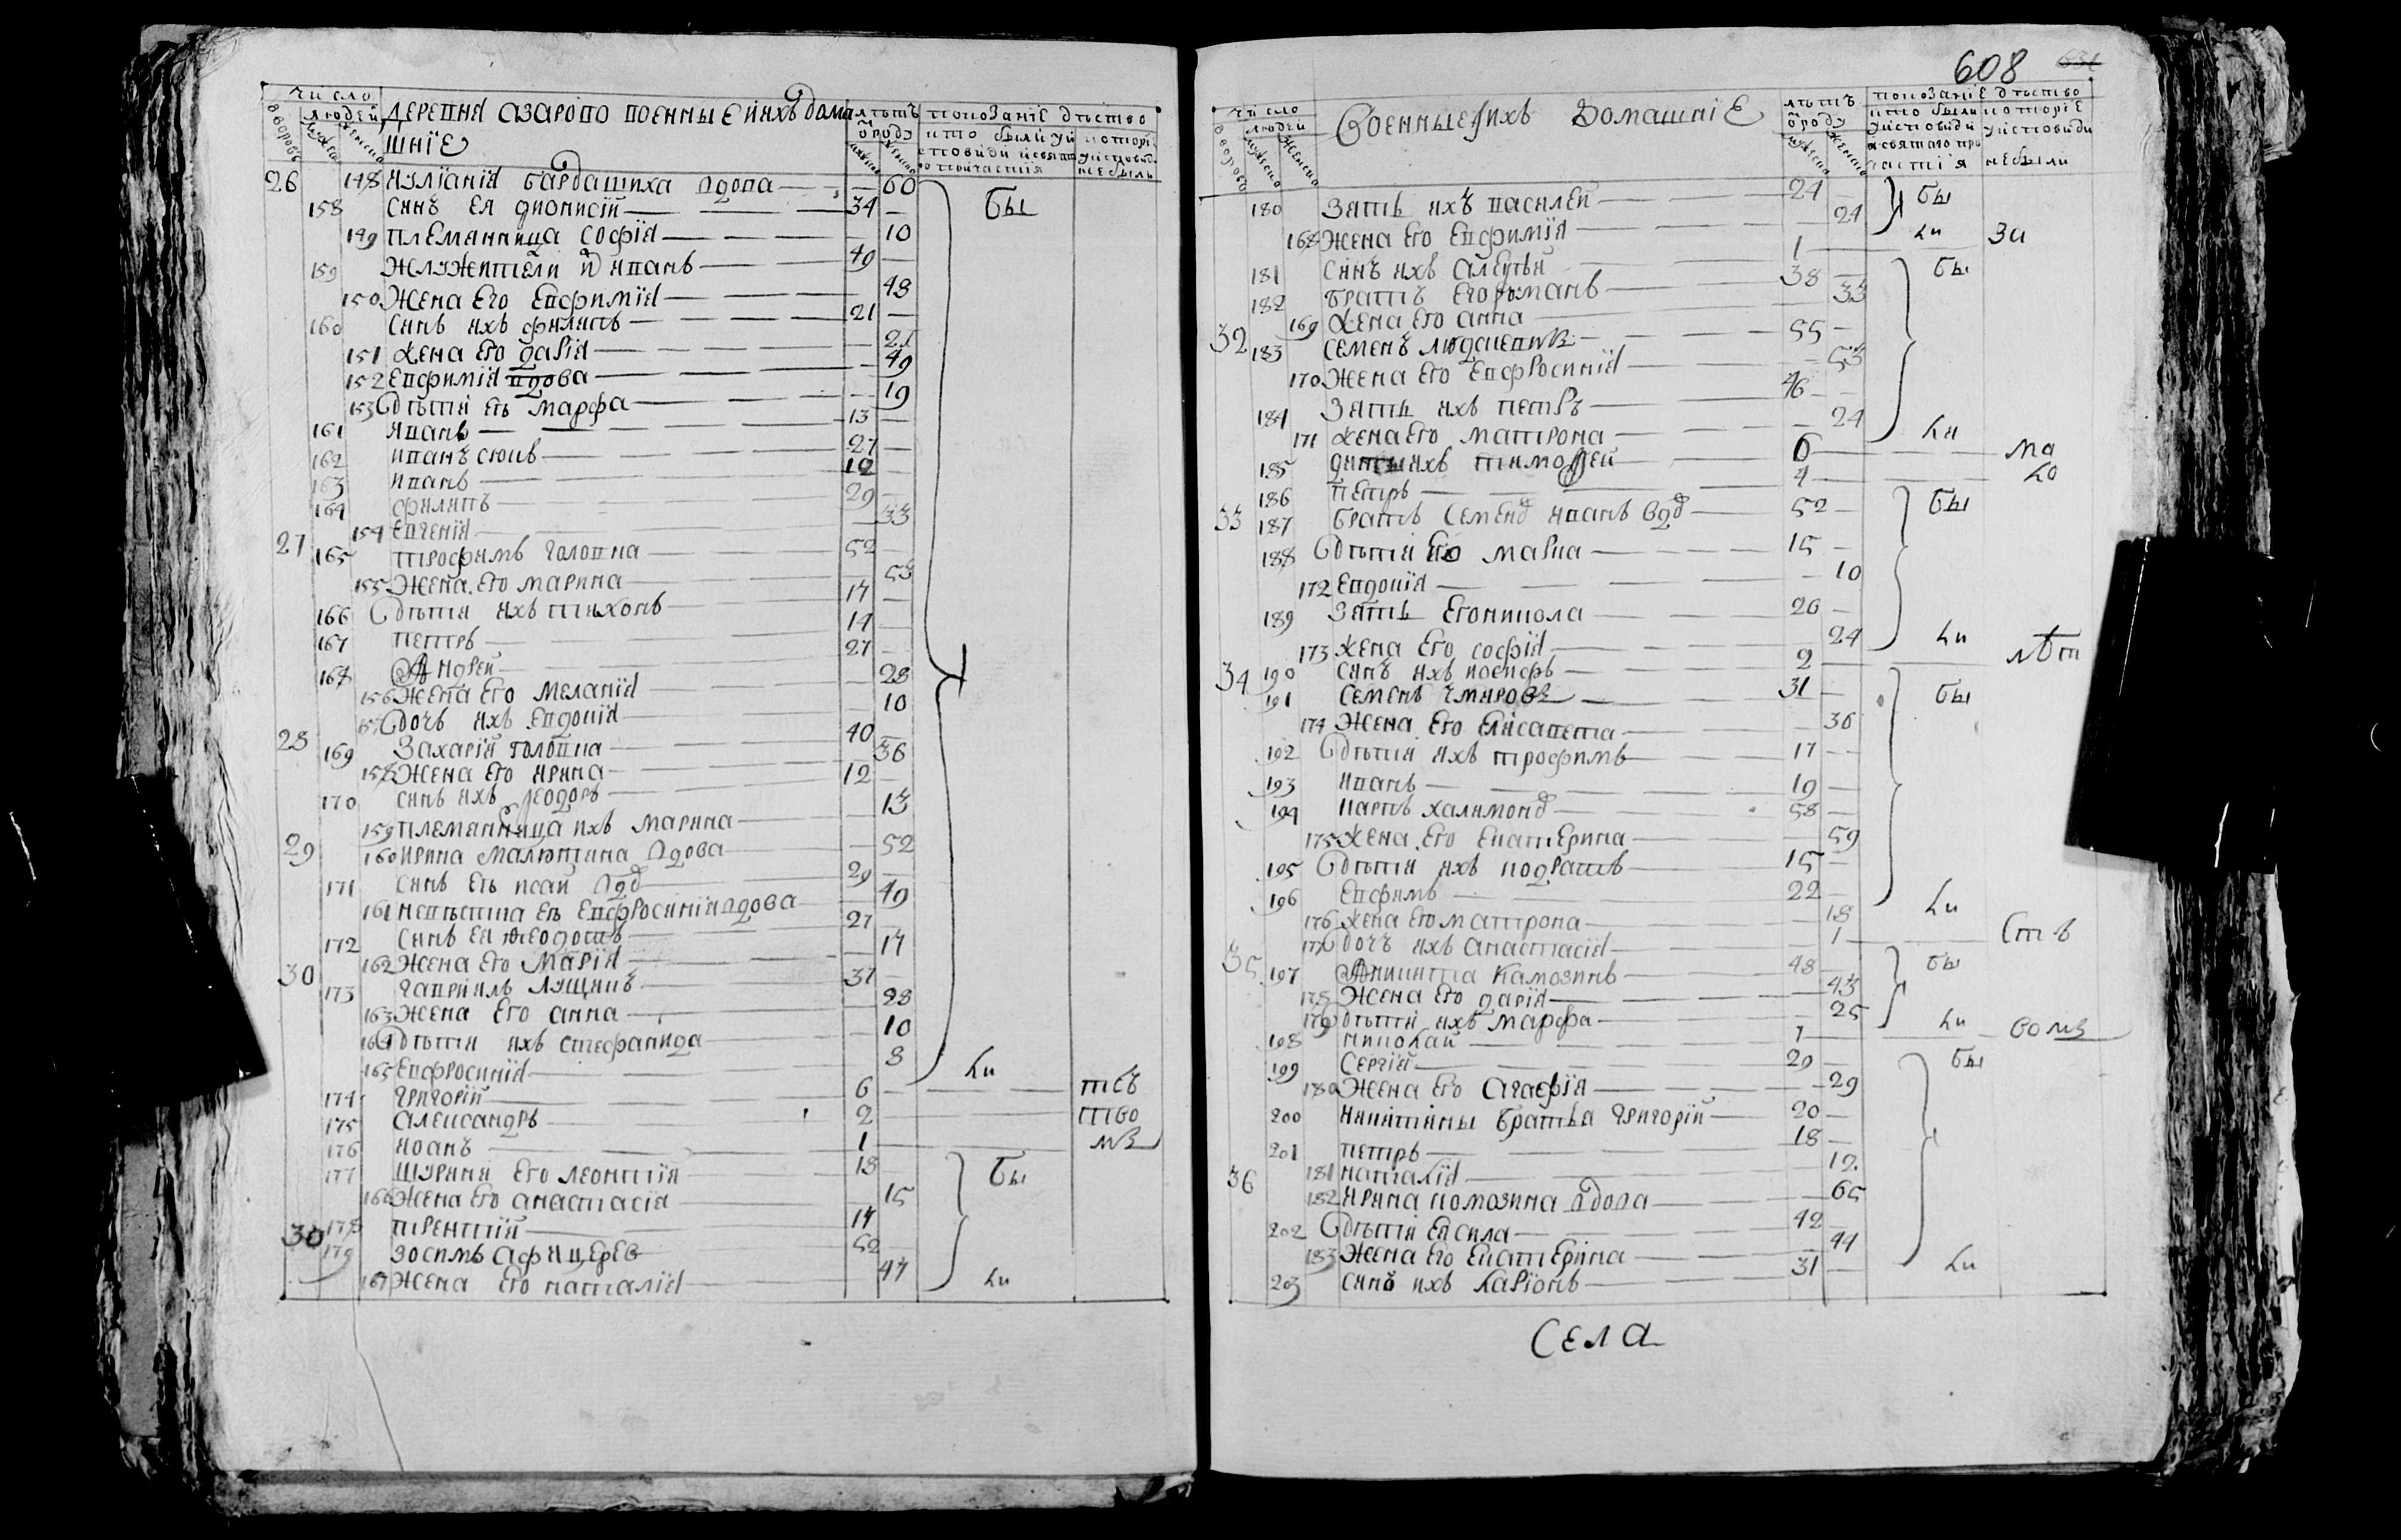 Число
дворовъ
людей
мужеска
женска
Деревня Азарово военные и ихъ дома
шніе
лѣтъ
ѿ роду
мужеска
женска
показаніе дѣйство
кто были у и
споведи и свята
го причастія
которіе
у исповеди
не были
26 148 Иуліаніа Бардашиха вдова 60 бы
158 Синъ ея Дионисій 34
149 Племянница Софіа 10
159 Жлужители ихъ Иванъ 49
150 Жена его Евфиміа 48
160 Синъ ихъ Филипъ 21
151 Жена его Даріа 21
152 Евфиміа вдова 49
153 Дѣти еѣ Марфа 19
161 Иванъ 13
162 Иванъ 27
163 Иванъ 12
164 Филипъ 29
154 Евгеніа 33
27 165 Трофимъ Головка 52
155 Жена его Марина 53
166 Дѣти ихъ Тихонъ 17
167 Петръ 14
168 Андрей 27
156 Жена его Меланіа 28
157 Дочъ ихъ Евдокіа 10
28 169 Захарій Головка 40
158 Жена его Ирина 36
170 Синъ ихъ Феодоръ 12
159 Племянница ихъ Марина 13
29 160 Ирина Малютина вдова 52
171 Синъ еѣ Исай вдв 29
161 Невѣстка еѣ Евфросиніа вдова 49
172 Синъ ея Феодотъ 27
162 Жена его Маріа 17
30 173 Гавріилъ Лущикъ 37
163 Жена его Анна 28
164 Дѣти ихъ Стефанида 10
165 Евфросиніа 8 ли
174 Григорій 6 тсъ
175 Александръ 2 тво
176 Иоанъ 1 мъ
177 Шуринъ его Леонтія 18 бы
166 Жена его Анастасіа 15
178 Терентій 17
30 179 Зосимъ Афицеревъ 52
167 Жена его Наталіа 47 ли
608
Число
дворовъ
людей
мужеска
женска
Военные и ихъ домашніе
лѣтъ
ѿ роду
мужеска
женска
показаніе дѣйство
кто были
у исповеди
и святаго при
частія
которіе
у исповеди
не были
180 Зять ихъ Василей 24 бы
168 Жена его Евфиміа 24 ли
181 Синъ ихъ Алеѯѣй 1 За
182 Братъ его Романъ 38 бы
169 Жена его Анна 33
32 183 Семенъ 55
170 Жена его Евфросиніа 53
184 Зять ихъ Петръ 46
171 Жена его Матрона 24 ли
185 Дити ихъ Тимофей 6 ма
186 Петръ 4 ло
33 187 Братъ Семена Иванъ вдв 52 бы
188 Дѣти его Марка 15
172 Евдокіа 10
189 Зять его Никола 26
173 Жена его Софіа 24 ли
34 190 Синъ ихъ Иосифъ 2 лѣт
191 Семенъ Чмировъ 31 бы
174 Жена его Елисавета 36
192 Дѣти ихъ Трофимъ 17
193 Иванъ 19
194 Карпъ Халимонд 58
175 Жена его Екатерина 59
195 Дѣти ихъ Кодратъ 15
196 Евфимъ 22
176 Жена его Матрона 18 ли
177 Дочъ ихъ Анастасіа 1 ств
35 197 Аникита Камозинъ 48 бы
178 Жена его Даріа 43
179 Дѣти ихъ Марфа 25 ли
198 Николай 1 вомъ
199 Сергій 29 бы
180 Жена его Агафія 29
200 Никитины братья Григорій 20
201 Петръ 18
181 Наталіа 12
36 182 Ирина Комозина вдова 65
202 Дѣти ея Сила 42
183 Жена его Екатерина 44
203 Синъ ихъ Ларіонъ 31 ли
Села